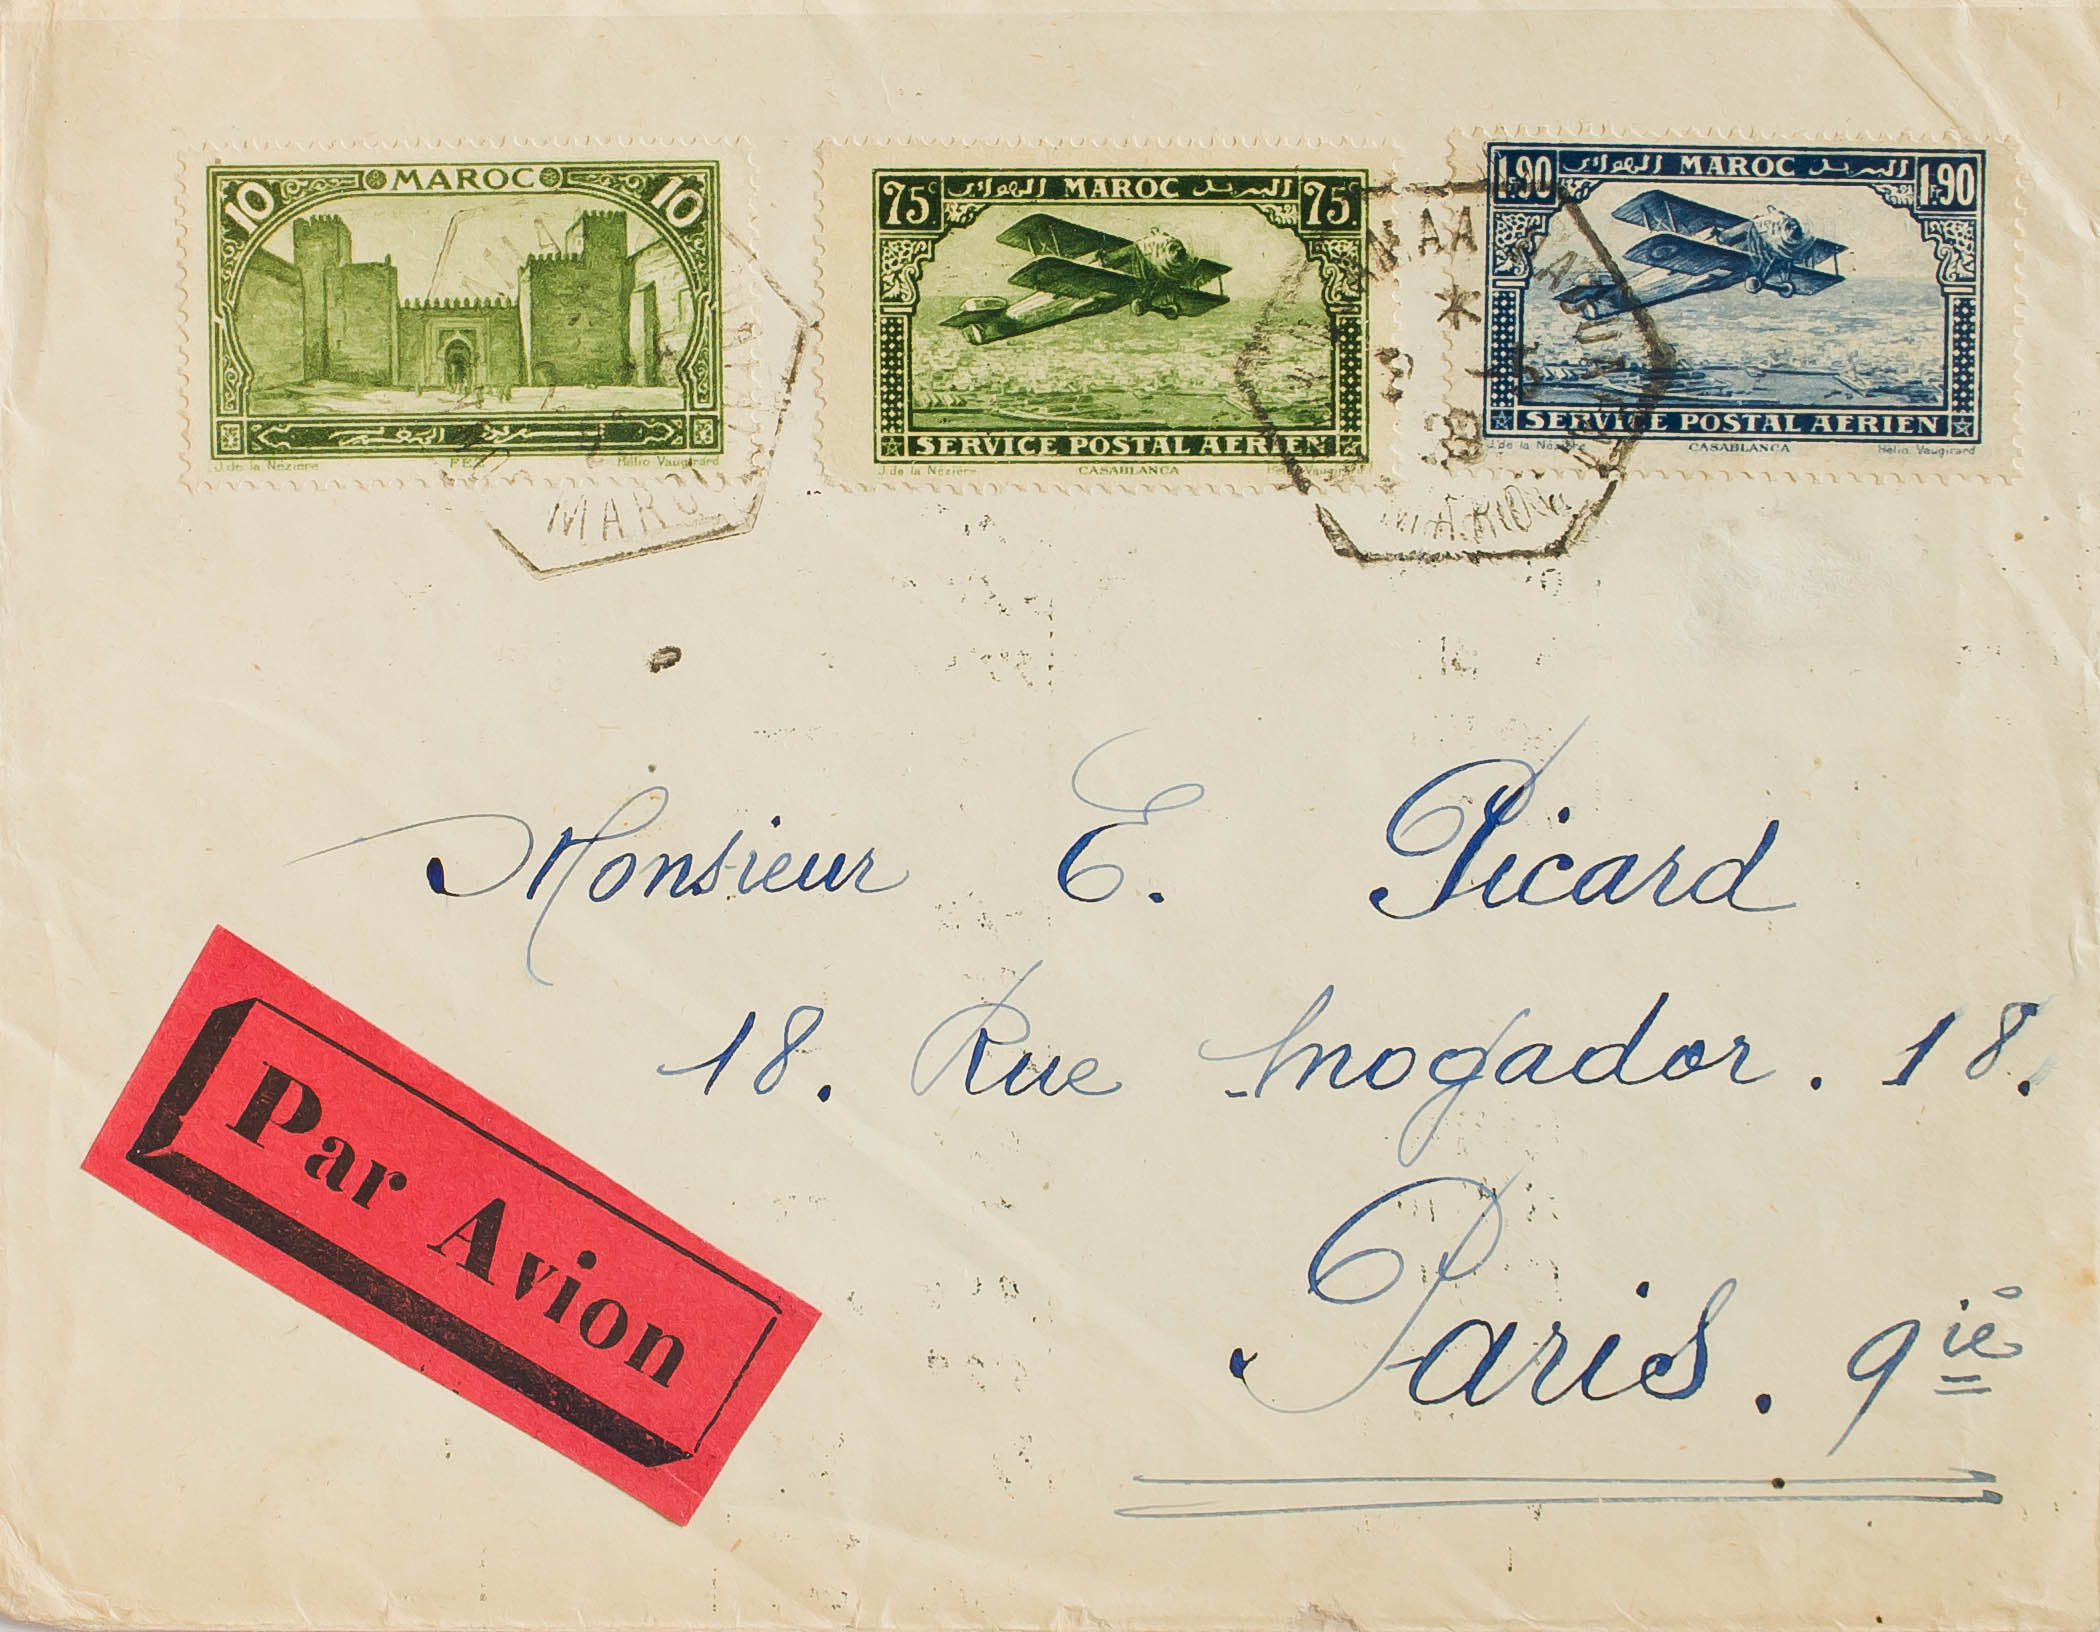 10 MAROC 10
FEZ
J. de la Nézière Hélio Vaugirard
75c MAROC البريد الهوائي 75c
SERVICE POSTAL AERIEN
J. de la Nézière CASABLANCA Hélio Vaugirard
1Fr.90 MAROC البريد الهوائي 1Fr.90
SERVICE POSTAL AERIEN
J. de la Nézière CASABLANCA Hélio Vaugirard
MAROC
MAROC
Monsieur E. Picard
18. Rue Mogador. 18.
Paris. 9ie
Par Avion